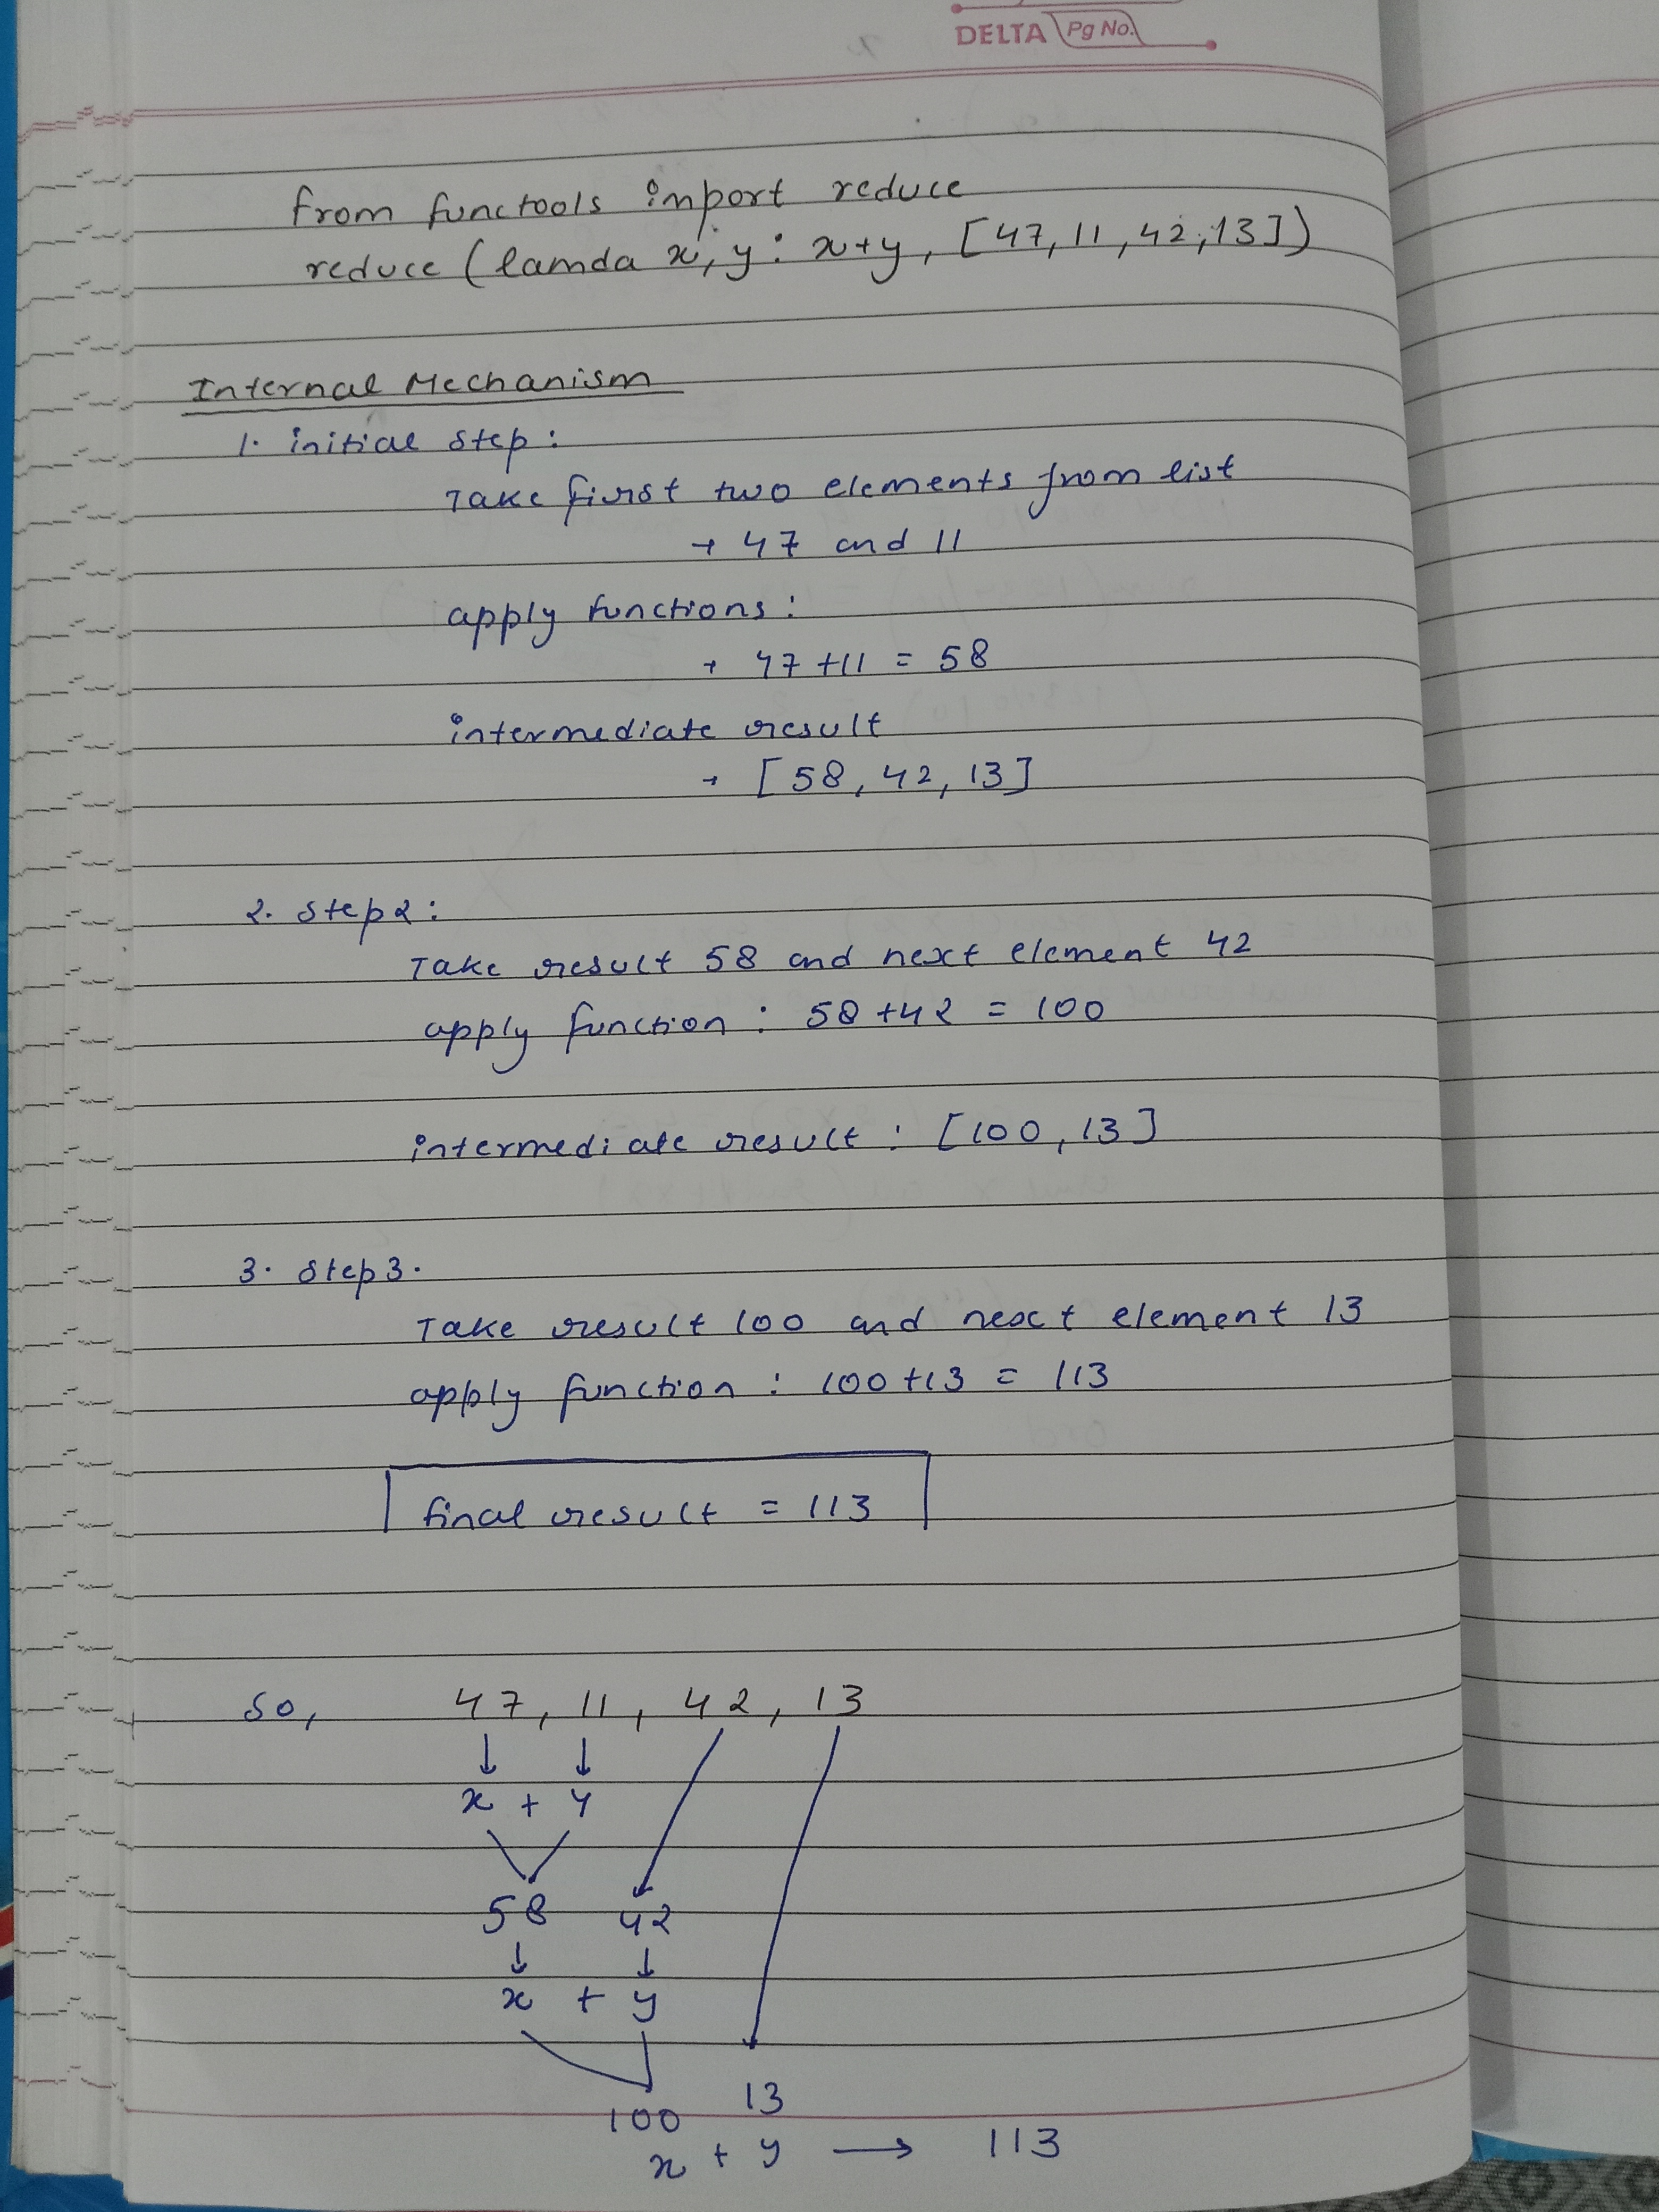 DELTA Pg No.
from functools import reduce
reduce (lamda x, y : x+y, [47, 11, 42, 13])
Internal Mechanism
1. initial step :
Take first two elements from list
→ 47 and 11
apply functions :
→ 47 + 11 = 58
intermediate result
→ [58, 42, 13]
2. step 2 :
Take result 58 and next element 42
apply function : 58 + 42 = 100
intermediate result : [100, 13]
3. step 3.
Take result 100 and next element 13
apply function : 100 + 13 = 113
final result = 113
so, 47, 11, 42, 13
↓ ↓
x + y
58 42
↓ ↓
x + y
100 13
x + y → 113